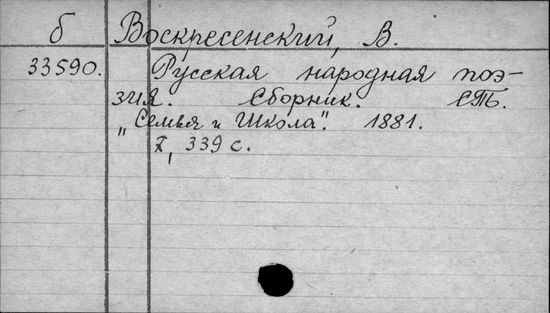 б Воскресенский, В.
33590. Русская народная поэ-
зия. Сборник. СПб.
„Семья и Школа". 1881.
I, 339 с.